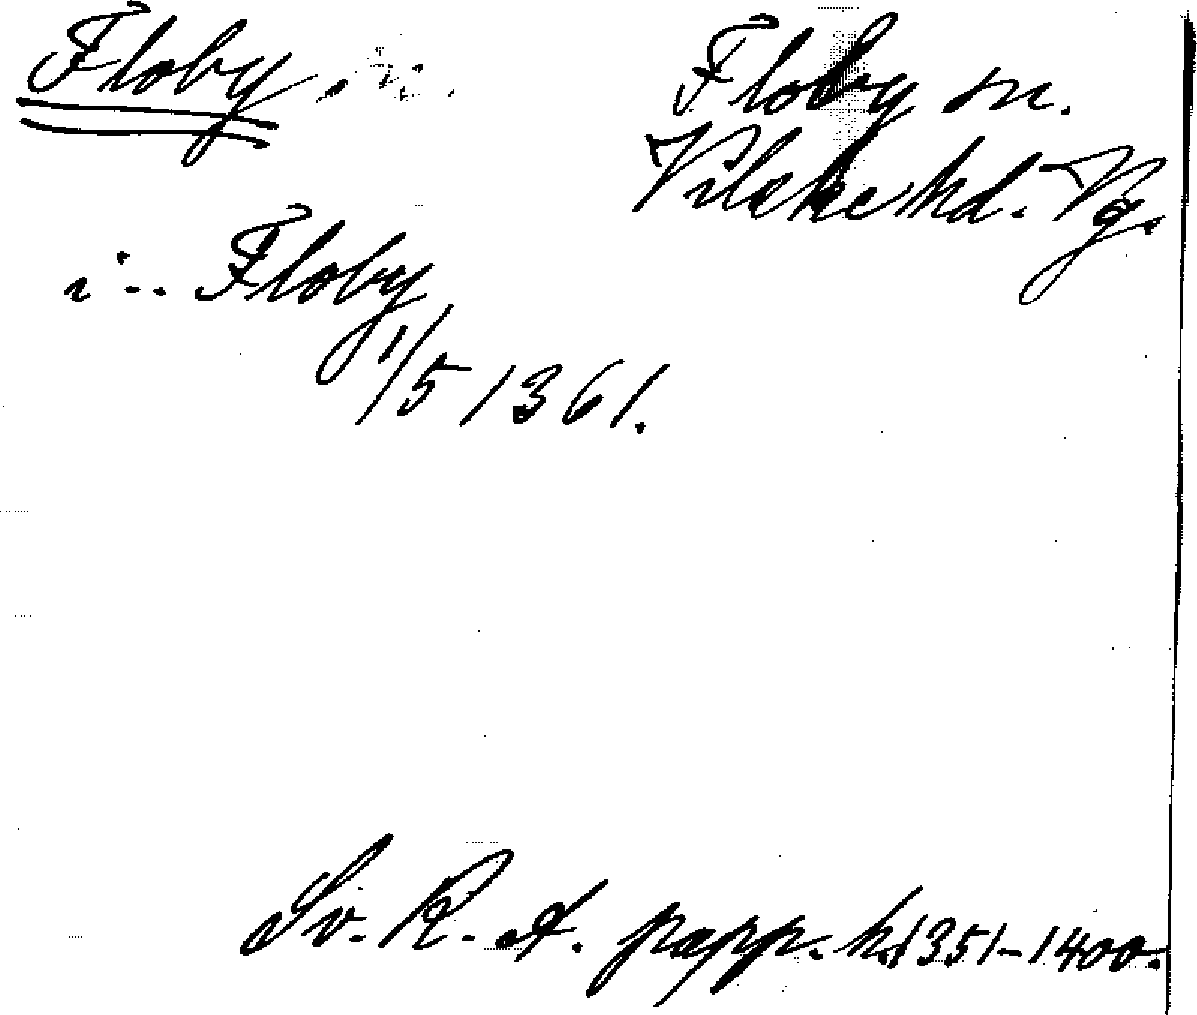 Floby sn.
Floby sn.
Vilske hd. Vg.
i -- Floby
1/5 1361.
Sv. R. A. papp. h. 1351-1400.